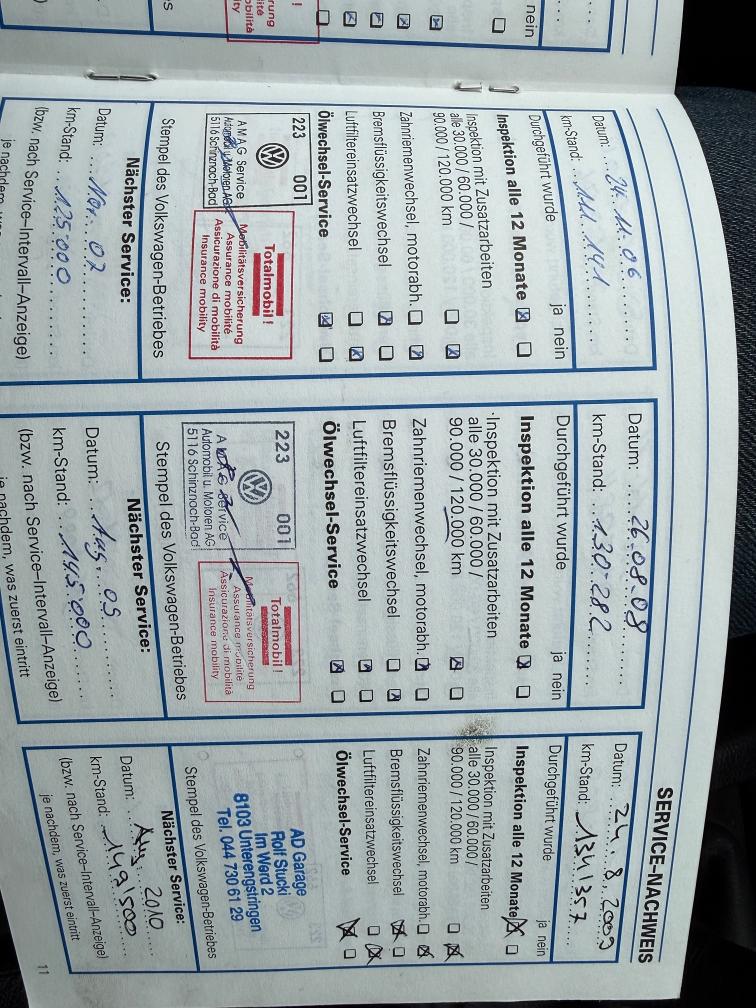 nein
Ölwechsel-Service
SERVICE-NACHWEIS
Datum: 24.11.06
km-Stand: 111.141
Durchgeführt wurde ja nein
Inspektion alle 12 Monate
Inspektion mit Zusatzarbeiten
alle 30.000 / 60.000 /
90.000 / 120.000 km
Zahnriemenwechsel, motorabh.
Bremsflüssigkeitswechsel
Luftfiltereinsatzwechsel
Ölwechsel-Service
223 001
AMAG Service
Automobil u. Motoren AG
5116 Schinznach-Bad
Totalmobil!
Mobilitätsversicherung
Assurance mobilité
Assicurazione di mobilità
Insurance mobility
Stempel des Volkswagen-Betriebes
Nächster Service:
Datum: Nov. 07
km-Stand: 125.000
(bzw. nach Service-Intervall-Anzeige)
Datum: 26.08.08
km-Stand: 130.282
Durchgeführt wurde ja nein
Inspektion alle 12 Monate
Inspektion mit Zusatzarbeiten
alle 30.000 / 60.000 /
90.000 / 120.000 km
Zahnriemenwechsel, motorabh.
Bremsflüssigkeitswechsel
Luftfiltereinsatzwechsel
Ölwechsel-Service
223 001
AMAG Service
Automobil u. Motoren AG
5116 Schinznach-Bad
Totalmobil!
Mobilitätsversicherung
Assurance mobilité
Assicurazione di mobilità
Insurance mobility
Stempel des Volkswagen-Betriebes
Nächster Service:
Datum: Aug. 09
km-Stand: 145.000
(bzw. nach Service-Intervall-Anzeige)
je nachdem, was zuerst eintritt
Datum: 24.8.2009
km-Stand: 134'357
Durchgeführt wurde ja nein
Inspektion alle 12 Monate
Inspektion mit Zusatzarbeiten
alle 30.000 / 60.000 /
90.000 / 120.000 km
Zahnriemenwechsel, motorabh.
Bremsflüssigkeitswechsel
Luftfiltereinsatzwechsel
Ölwechsel-Service
AD Garage
Rolf Stucki
Im Werd 2
8103 Unterengstringen
Tel. 044 730 61 29
Stempel des Volkswagen-Betriebes
Nächster Service:
Datum: Aug. 2010
km-Stand: 149'500
(bzw. nach Service-Intervall-Anzeige)
je nachdem, was zuerst eintritt
11